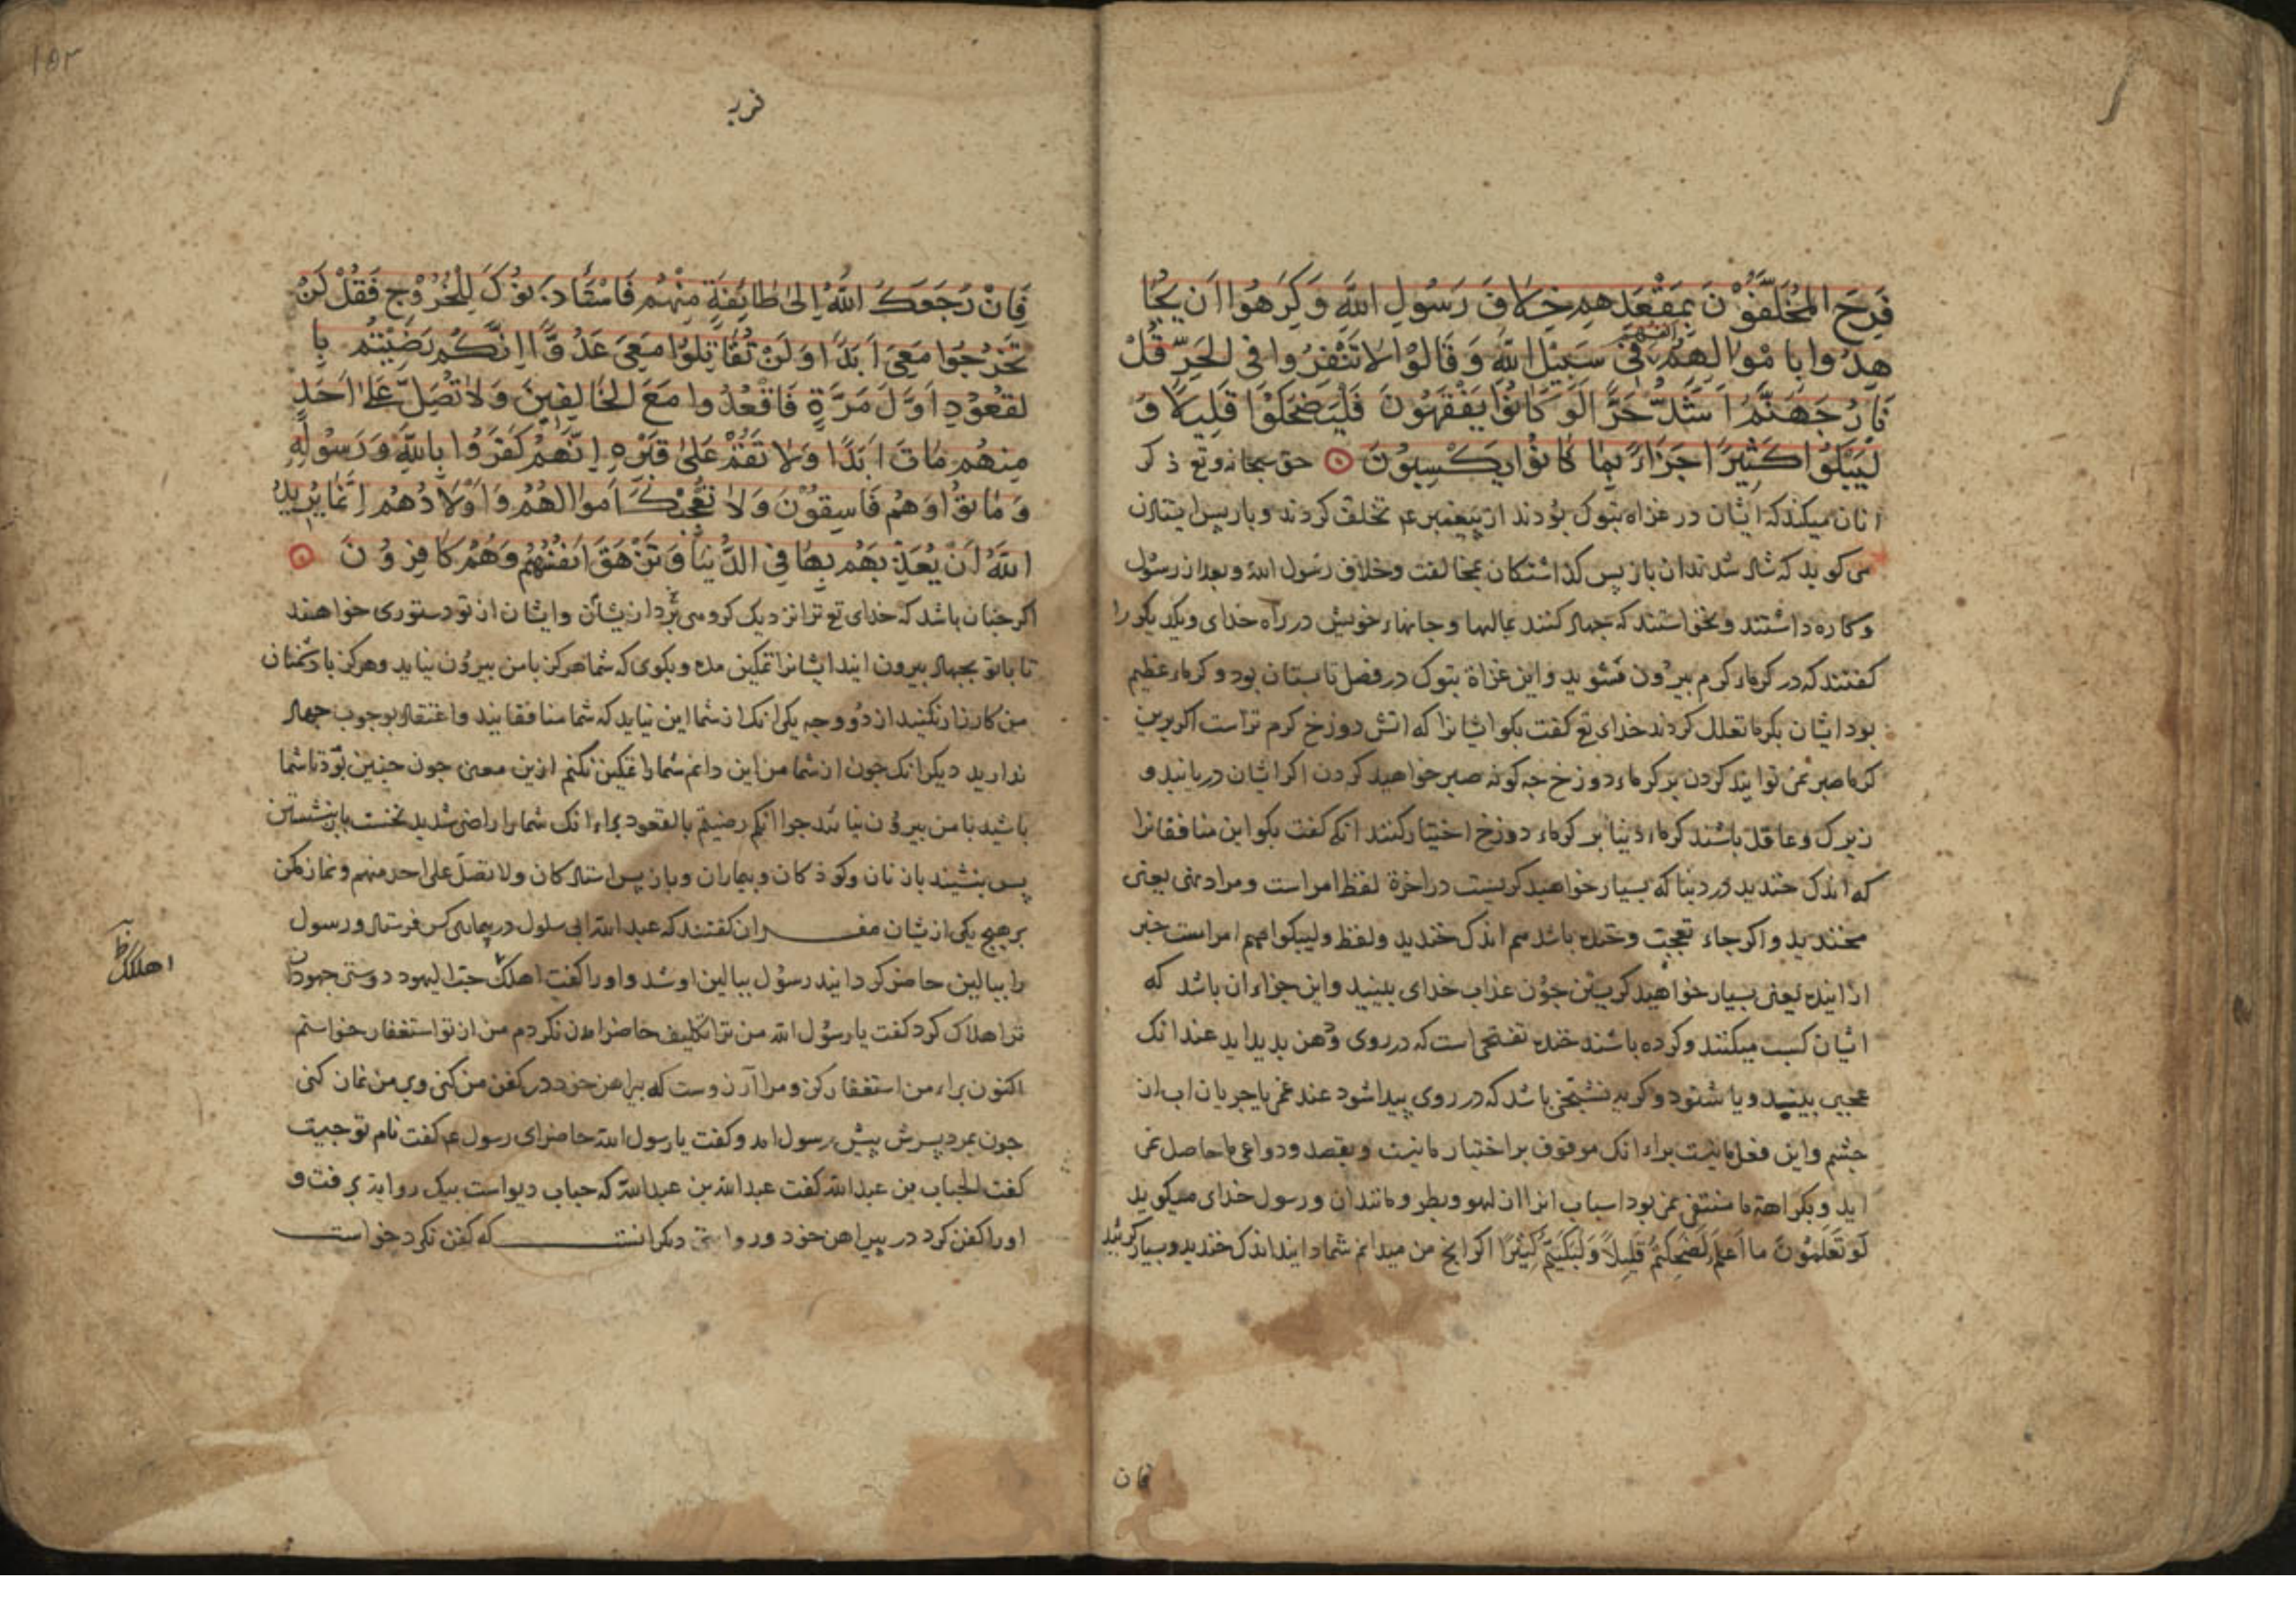 فَرِحَ المُخَلَّفُوْنَ بِمَقْعَدِهِم خِلَافَ رَسُولِ اللَّهِ وَكَرِهُوا اَن يُجَا
هِدُوا بِامْوَالِهِمْ وَانفُسِهِمْ فِيْ سَبِيْلِ اللَّهِ وَقَالُوْا لَا تَنْفِرُوا فِي الحَرِّ قُلْ
نَارُ جَهَنَّمَ اَشَدُّ حَرًّا لَوْ كَانُوْا يَفْقَهُونَ فَلْيَضْحَكُوْا قَلِيلًا وَ
لْيَبْكُوْا كَثِيْرًا جَزَاءً بِمَا كَانُوْا يَكْسِبُوْنَ حق سبحانه وتع ذكر
انان میکند که ایشان در غزاه تبوک بودند از پیغمبر عم تخلف کردند و بازپس ایستادن
می کوید که شاد شدند ان بازپس کذاشتکان بمخالفت و خلاف رسول الله و بعد از رسول
و کاره داشتند و نخواستند که جهاد کنند بمالها و جانهاء خویش در راه خدای و یکدیکر را
کفتند که در کرماء کرم بیرون مشوید و این غزاة تبوک در فصل تابستان بود و کرماء عظیم
بود ایشان بکرما تعلل کردند خدای تع کفت بکو ایشانرا که اتش دوزخ کرم تر است اکر برین
کرما صبر نمی توانید کردن بر کرماء دوزخ چه کونه صبر خواهید کردن اکر ایشان دریابند و
زیرک و عاقل باشند کرماء دنیا بر کرماء دوزخ اختیار کنند انکه کفت بکو این منافقانرا
که اندک خندید در دنیا که بسیار خواهید کریست در اخرة لفظ امر است و مراد نهی یعنی
مخندید و اکر جاء تعجب و خنده باشد هم اندک خندید و لفظ وليبكوا هم امر است خبر
از اینده یعنی بسیار خواهید کریستن چون عذاب خدای ببینید و این جزاء ان باشد که
ایشان کسب میکنند و کرده باشند خنده تفتحی است که در روی و دهن پدید اید عند انک
عجبی بینید و یا شنود و کریه تشنجی باشد که در روی پیدا شود عند غم با جریان اب از
چشم و این فعل ما نیست براء انک موقوف بر اختیار ما نیست و بقصد و دواعی ما حاصل نمی
اید و بکراهة ما منتفی نمی بود اسباب انرا از لهو و بطر و مانند ان و رسول خدای میکوید
لَوْ تَعْلَمُوْنَ ما اَعْلَمُ لَضَحِكْتُمْ قَلِيلًا وَلَبَكَيْتُمْ كَثِيْرًا اکر انچ من میدانم شما دانید اندک خندید و بسیار کریید
فان
فَاِنْ رَجَعَكَ اللَّهُ اِلى طَائِفَةٍ مِنْهُم فَاسْتَأْذَنُوْكَ لِلْخُرُوْجِ فَقُلْ لَنْ
تَخْرُجُوا مَعِيَ اَبَدًا وَلَنْ تُقَاتِلُوْا مَعِيَ عَدُوًّا اِنَّكُمْ رَضِيْتُم بِا
لقُعُوْدِ اَوَّلَ مَرَّةٍ فَاقْعُدُوا مَعَ الخَالِفِيْنَ وَلَا تُصَلِّ عَلٰى اَحَدٍ
مِنهُم مَاتَ اَبَدًا وَلَا تَقُمْ عَلٰى قَبْرِهِ اِنَّهُمْ كَفَرُوا بِاللَّهِ وَرَسُوْلِهِ
وَمَاتُوْا وَهُم فَاسِقُوْنَ وَلَا تُعْجِبْكَ اَموَالُهُمْ وَاَوْلَادُهُمْ اِنَّمَا يُرِيْدُ
اللَّهُ اَنْ يُعَذِّبَهُمْ بِهَا فِي الدُّنْيَا وَتَزْهَقَ اَنْفُسُهُمْ وَهُمْ كَافِرُوْنَ
اکر چنان باشد که خدای تع ترا نزدیک کروهی برد ازیشان و ایشان از تو دستوری خواهند
تا با تو بجهاد بیرون ایند ایشانرا تمکین مده و بکوی که شما هرکز با من بیرون نیایید و هرکز با دشمنان
من کارزار نکنید از دو وجه یکی انک از شما این نیاید که شما منافقانید و اعتقاد بوجوب جهاد
ندارید دیکر انک چون از شما من این دانم شما را تمکین نکنم ازین معنی چون چنین بود تا شما
باشید با من بیرون نیایید چرا انكم رضيتم بالقعود براء انک شما را راضی شدید نخست بازنشستن
پس بنشینید با زنان و کوذکان و بیماران و بازپس استادکان ولا تصل على احد منهم و نماز مکن
بر هیچ یکی ازیشان مفسران کفتند که عبد الله ابی سلول در بیماری کس فرستاد و رسول
را ببالین حاضر کردانید رسول ببالین او شد و اورا کفت اهلكك حب اليهود دوستی جهودان
ترا هلاک کرد کفت یا رسول الله من ترا تکلیف حاضر امدن نکردم من از تو استغفار خواستم
اکنون براء من استغفار کن و مرا آرزوست که پیراهن خود در کفن من کنی و بر من نماز کنی
چون بمرد پسرش پیش رسول امد و کفت یا رسول الله حاضر ای رسول عم کفت نام تو چیست
کفت الحباب بن عبد الله کفت عبد الله بن عبد الله که حباب دیو است بیک روایة برفت و
اورا کفن کرد در پیراهن خود و روایتی دیکر انست که کفن نکرد خواست
اهلكك